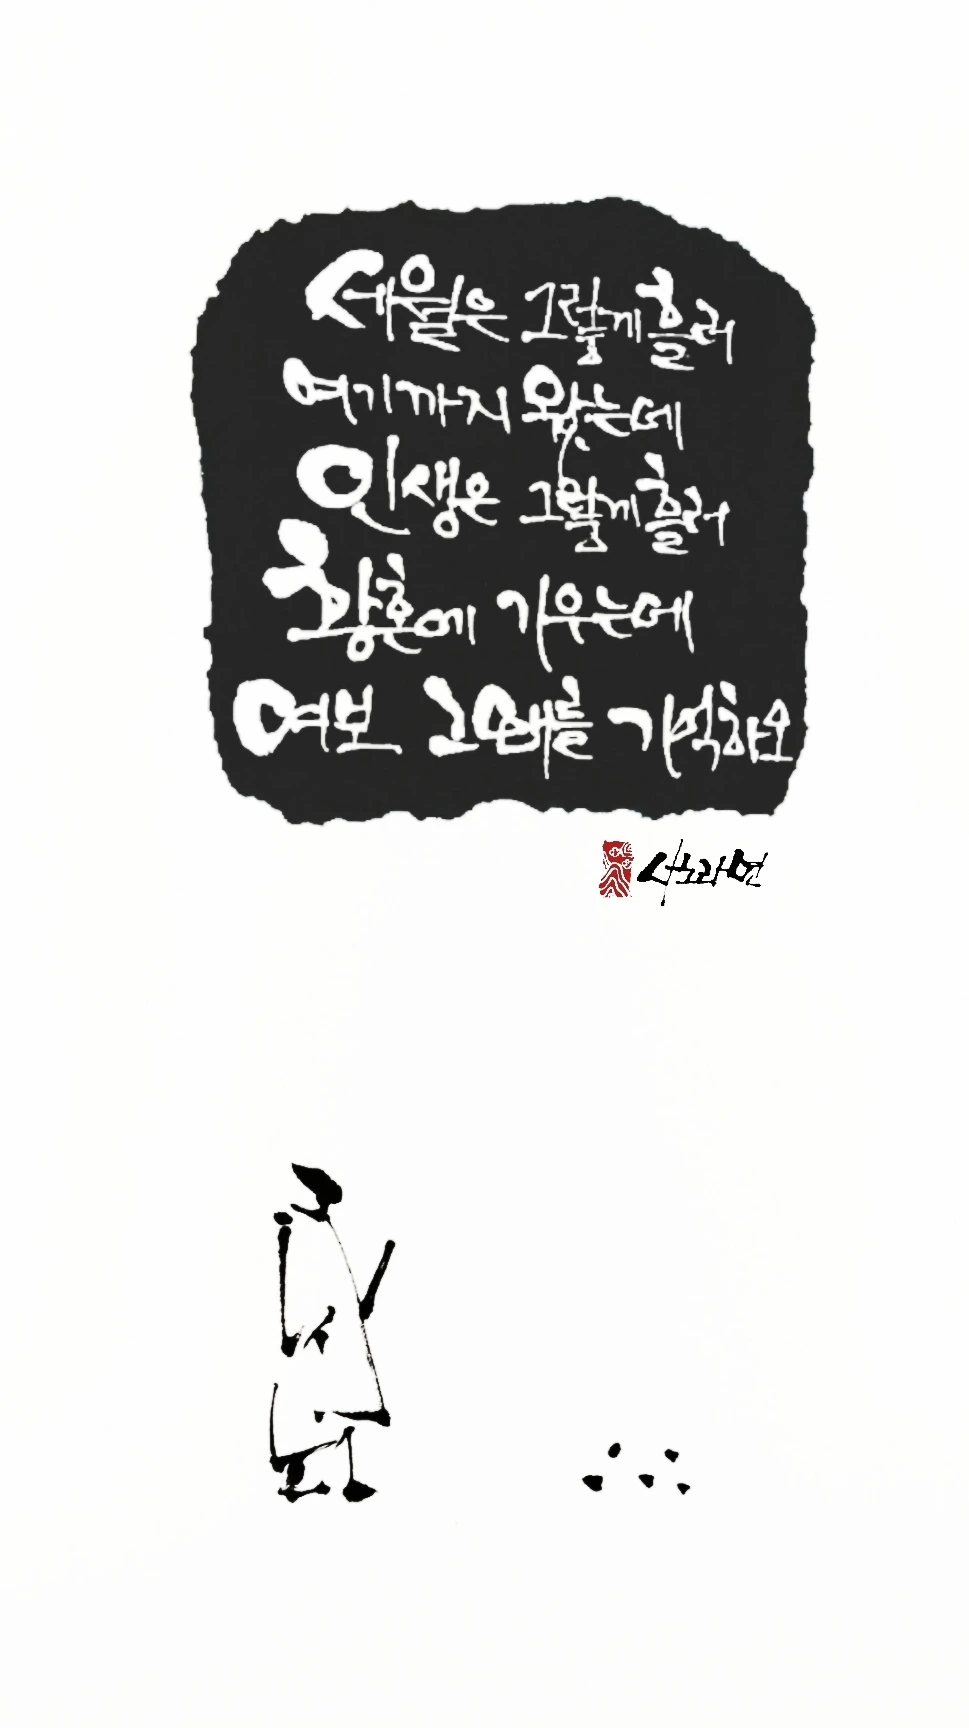 세월은 그렇게 흘러
여기까지 왔는데
인생은 그렇게 흘러
황혼에 기우는데
여보 그때를 기억하오